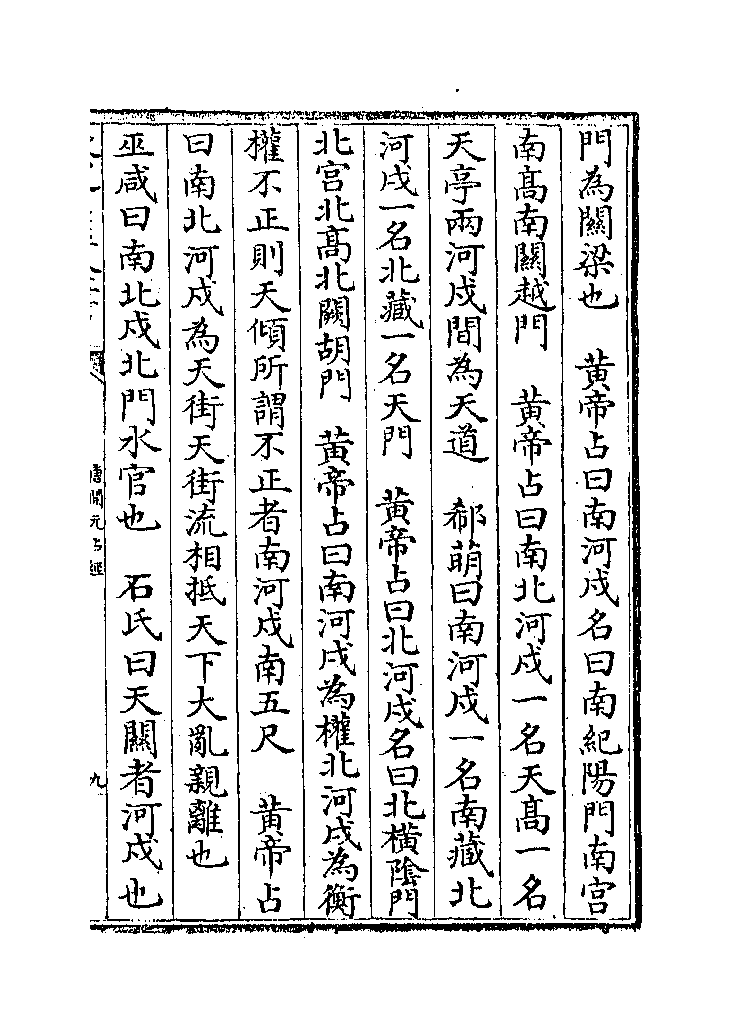 門為關梁也　黄帝占曰南河戍名曰南紀陽門南宫
南髙南關越門　黄帝占曰南北河戍一名天髙一名
天亭兩河戍間為天道　郗萌曰南河戍一名南藏北
河戍一名北藏一名天門　黄帝占曰北河戍名曰北横隂門
北宫北髙北闕胡門　黄帝占曰南河戍為權北河戍為衡
權不正則天傾所謂不正者南河戍南五尺　黄帝占
曰南北河戍為天街天街流相抵天下大亂親離也
巫咸曰南北戍北門水官也　石氏曰天關者河戍也
唐開元占經
九